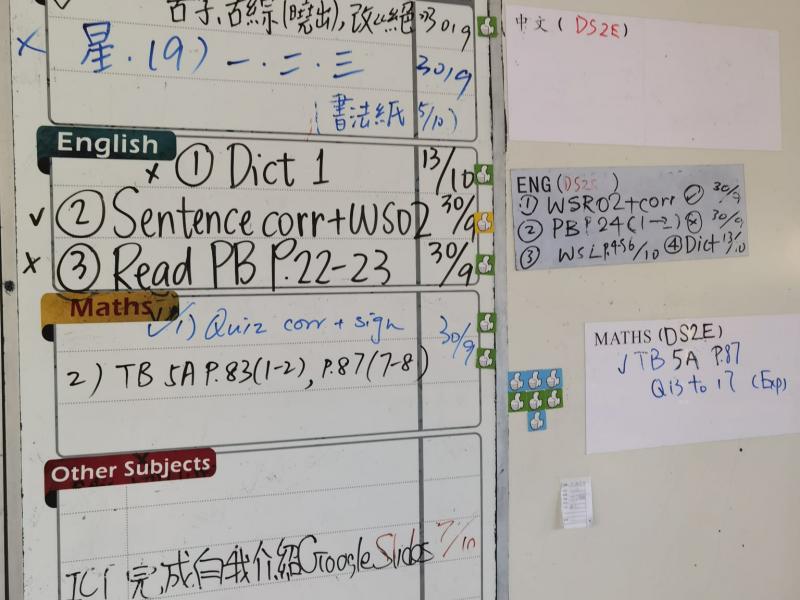 百子、百綜(曉出),改心絕 30/9
x 星.(9)一.二.三 30/9
(書法紙 5/10)
English
x ① Dict 1 13/10
✓ ② Sentence corr+WS02 30/9
x ③ Read PB P.22-23 30/9
Maths
✓1) Quiz corr + sign 30/9
2) TB 5A P.83(1-2), P.87(7-8)
Other Subjects
完成自我介紹Google Slides 7/10
中文 ( DS2E )
ENG (DS2E)
① WSR02+corr 30/9
② PB P.24(1-2) 30/9
③ WS 6/10 ④ Dict 13/10
MATHS (DS2E)
✓ TB 5A P.87
Q13 to 17 (Exp)